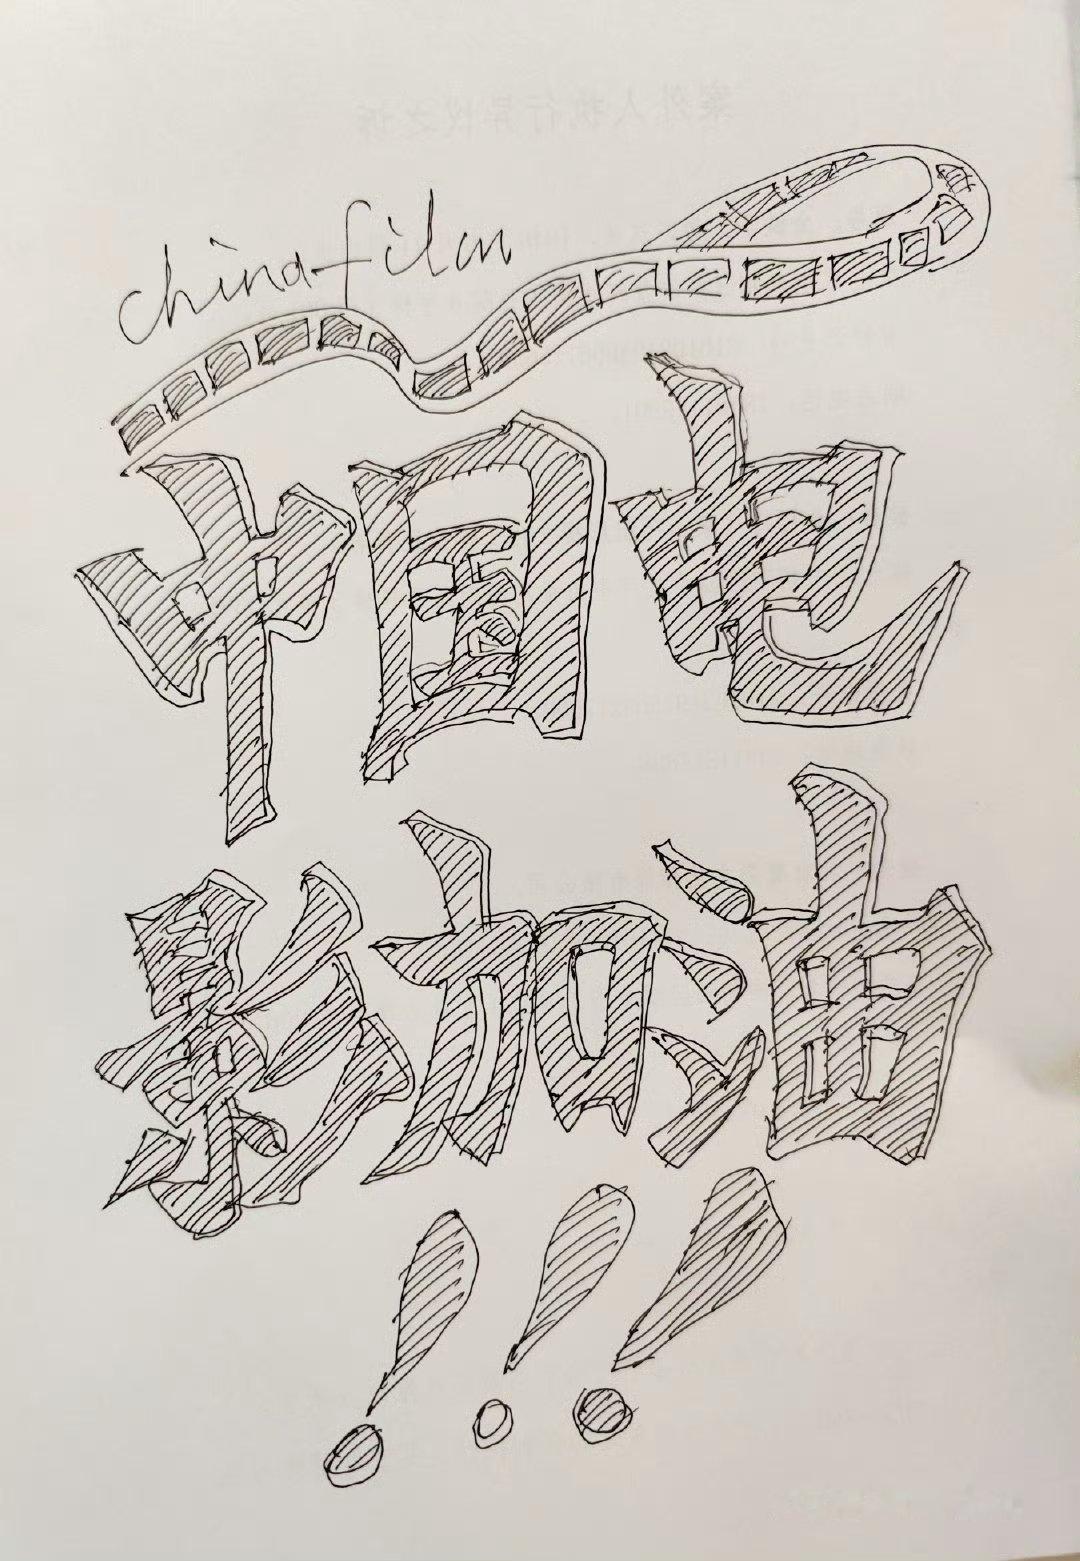 china film
中国电
影加油
!!!